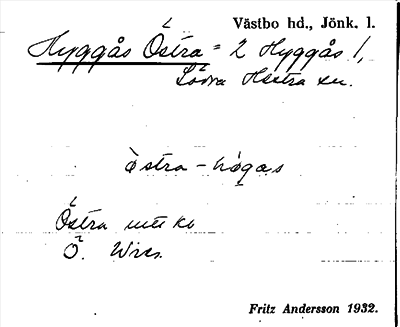 Västbo hd., Jönk. l.
Hyggås Östra = 2 Hyggås 1,
Södra Hestra sn.
östra - högas
Östra utt. ko
Ö.
Fritz Andersson 1932.